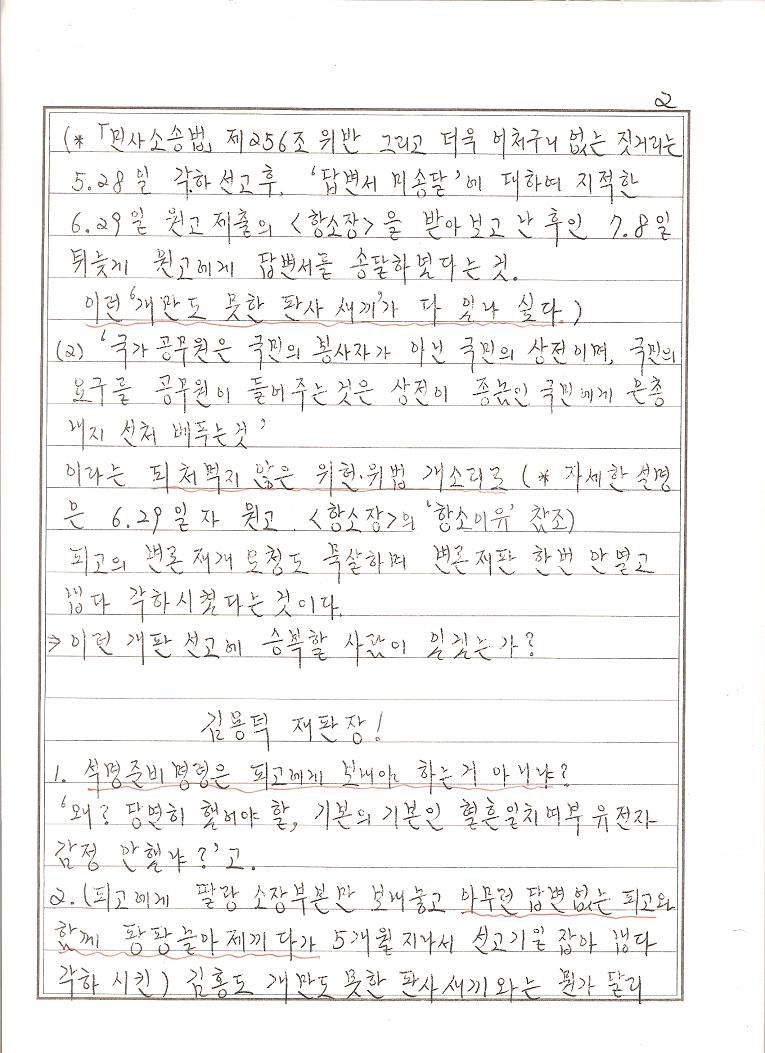 2
(* 「민사소송법」 제256조 위반 그리고 더욱 어처구니 없는 짓거리는
5.28일 각하선고후, '답변서 미송달'에 대하여 지적한
6.29일 원고제출의 <항소장>을 받아보고 난 후인 7.8일
뒤늦게 원고에게 답변서를 송달하였다는 것.
이런 '개만도 못한 판사 새끼'가 다 있나 싶다.)
(2) '국가 공무원은 국민의 봉사자가 아닌 국민의 상전이며, 국민의
요구를 공무원이 들어주는 것은 상전이 종놈인 국민에게 은총
내지 선처 베푸는것'
이라는 되처먹지 않은 위헌·위법 개소리로 (* 자세한 설명
은 6.29일자 원고 <항소장>의 '항소이유' 참조)
피고의 변론재개 요청도 묵살하며 변론재판 한번 안열고
냅다 각하시켰다는 것이다.
→ 이런 개판 선고에 승복할 사람이 있겠는가?
김용덕 재판장!
1. 석명준비명령은 피고에게 보내야 하는거 아니냐?
'왜? 당연히 했어야 할, 기본의 기본인 혈흔일치여부 유전자
감정 안했냐?'고.
2. (피고에게 딸랑 소장부본만 보내놓고 아무런 답변없는 피고와
함께 팡팡놀아제끼다가 5개월 지나서 선고기일 잡아 냅다
각하 시킨) 김홍도 개만도 못한 판사새끼와는 뭔가 달리